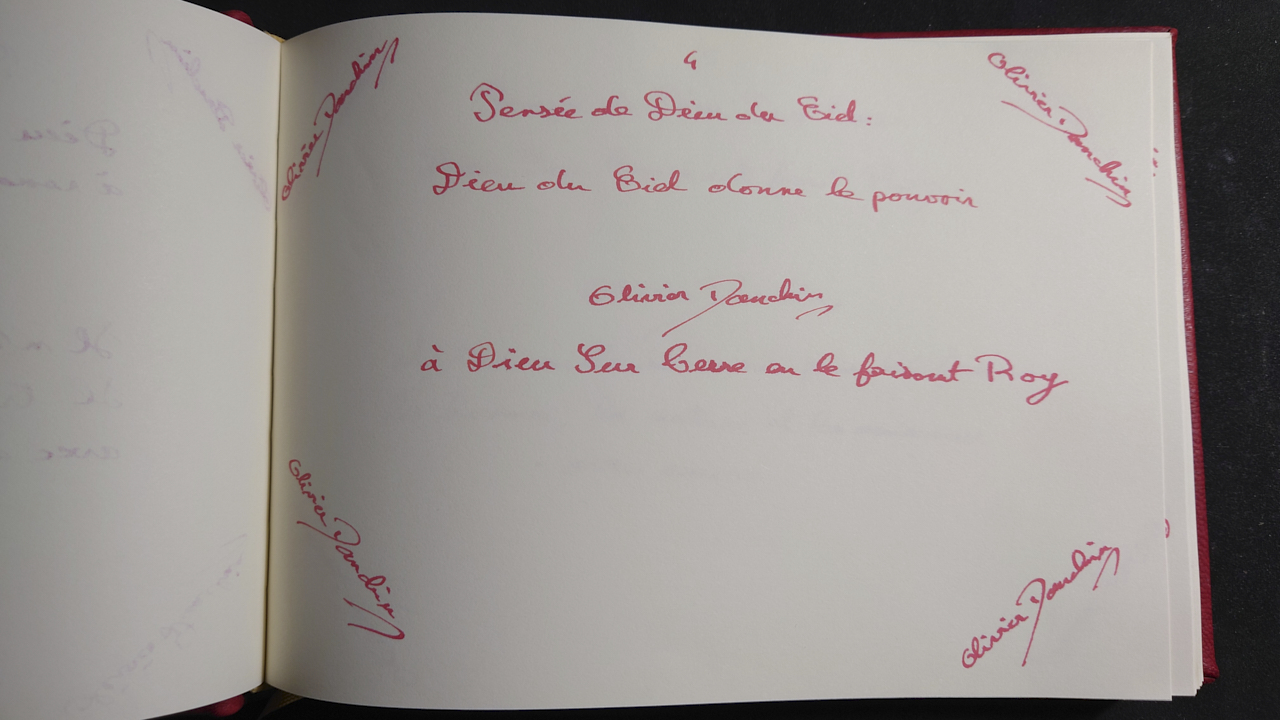 4
Olivier Danchin
Olivier Danchin
Pensée de Dieu du Ciel :
Dieu du Ciel donne le pouvoir
Olivier Danchin
à Dieu Sur Terre en le faisant Roy
Olivier Danchin
Olivier Danchin